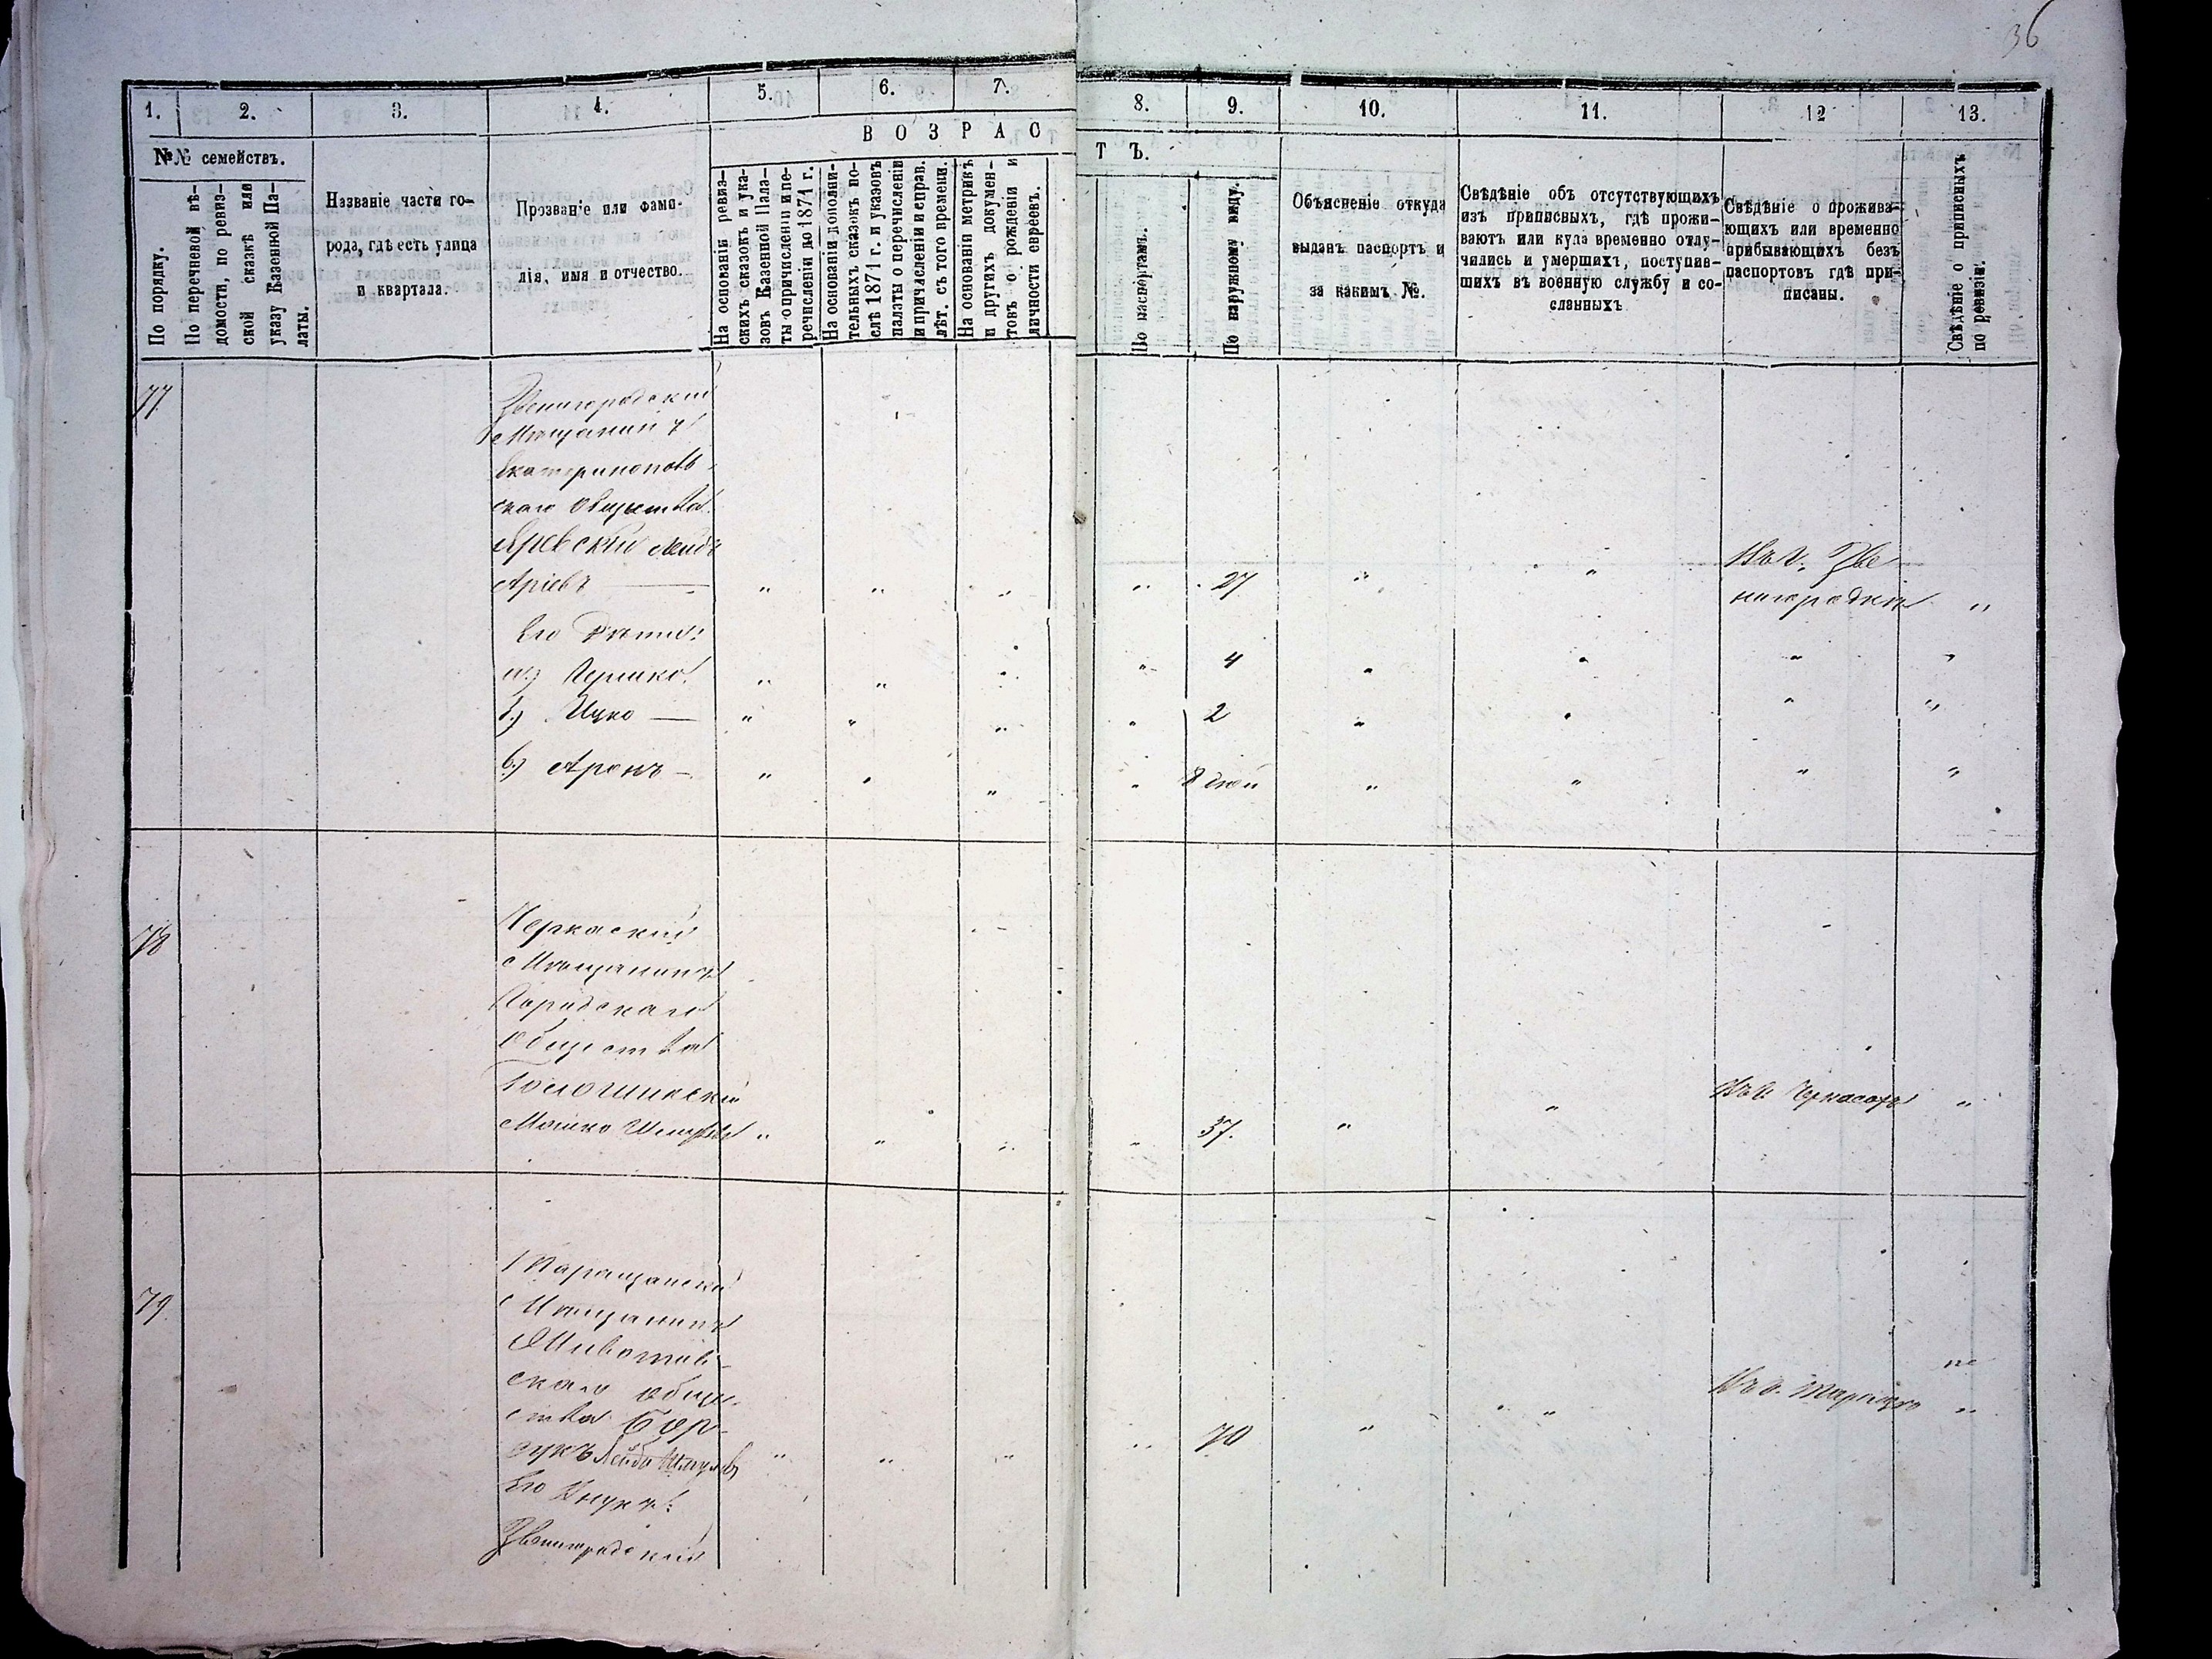 36
1. 2. 3. 4. 5. 6. 7. 8. 9. 10. 11. 12 13.
№№ семействъ.
По порядку.
По перечневой вѣ-
домости, по ревиз-
ской сказкѣ или
указу Казенной Па-
латы.
Названіе части го-
рода, гдѣ есть улица
и квартала.
Прозваніе или фами-
лія, имя и отчество.
ВОЗРАСТЪ.
На основаніи ревиз-
скихъ сказокъ и ука-
зовъ Казенной Пала-
ты о причисленіи и пе-
речисленіи до 1871 г.
На основаніи дополни-
тельныхъ сказокъ по-
слѣ 1871 г. и указовъ
палаты о перечисленіи
и причисленіи и справ.
лѣт. съ того времени.
На основаніи метрикъ
и другихъ докумен-
товъ о рожденіи и
личности евреевъ.
По паспортамъ.
По наружному виду.
Объясненіе откуда
выданъ паспортъ и
за какимъ №.
Свѣдѣніе объ отсутствующихъ
изъ приписныхъ, гдѣ прожи-
ваютъ или куда временно отлу-
чились и умершихъ, поступив-
шихъ въ военную службу и со-
сланныхъ
Свѣдѣніе о прожива-
ющихъ или временно
прибывающихъ безъ
паспортовъ гдѣ при-
писаны.
Свѣдѣніе о приписныхъ
по ревизіи.
77
Звенигородскій
Мѣщанинъ
Екатеринополь-
скаго Общества
Аріевъ — " " " " 27 " " Въ г. Зве
нигородкѣ "
Его дѣти:
а) Гершко " " " " 4 " " " "
б) Ицко — " " " " 2 " " " "
в) Аронъ — " " " " 8 дней " " " "
78
Черкаскій
Мѣщанинъ
Городскаго
Общества
Мошко Шмулевъ " " " " 37. " " Въ г. Черкасахъ "
79
Таращанскій
Мѣщанинъ
Животов-
скаго обще-
ства Бор-
сукъ Лейба Шмулевъ " " " " 70 " " Въ г. Таращѣ "
Его Внукъ:
Звенигородскій